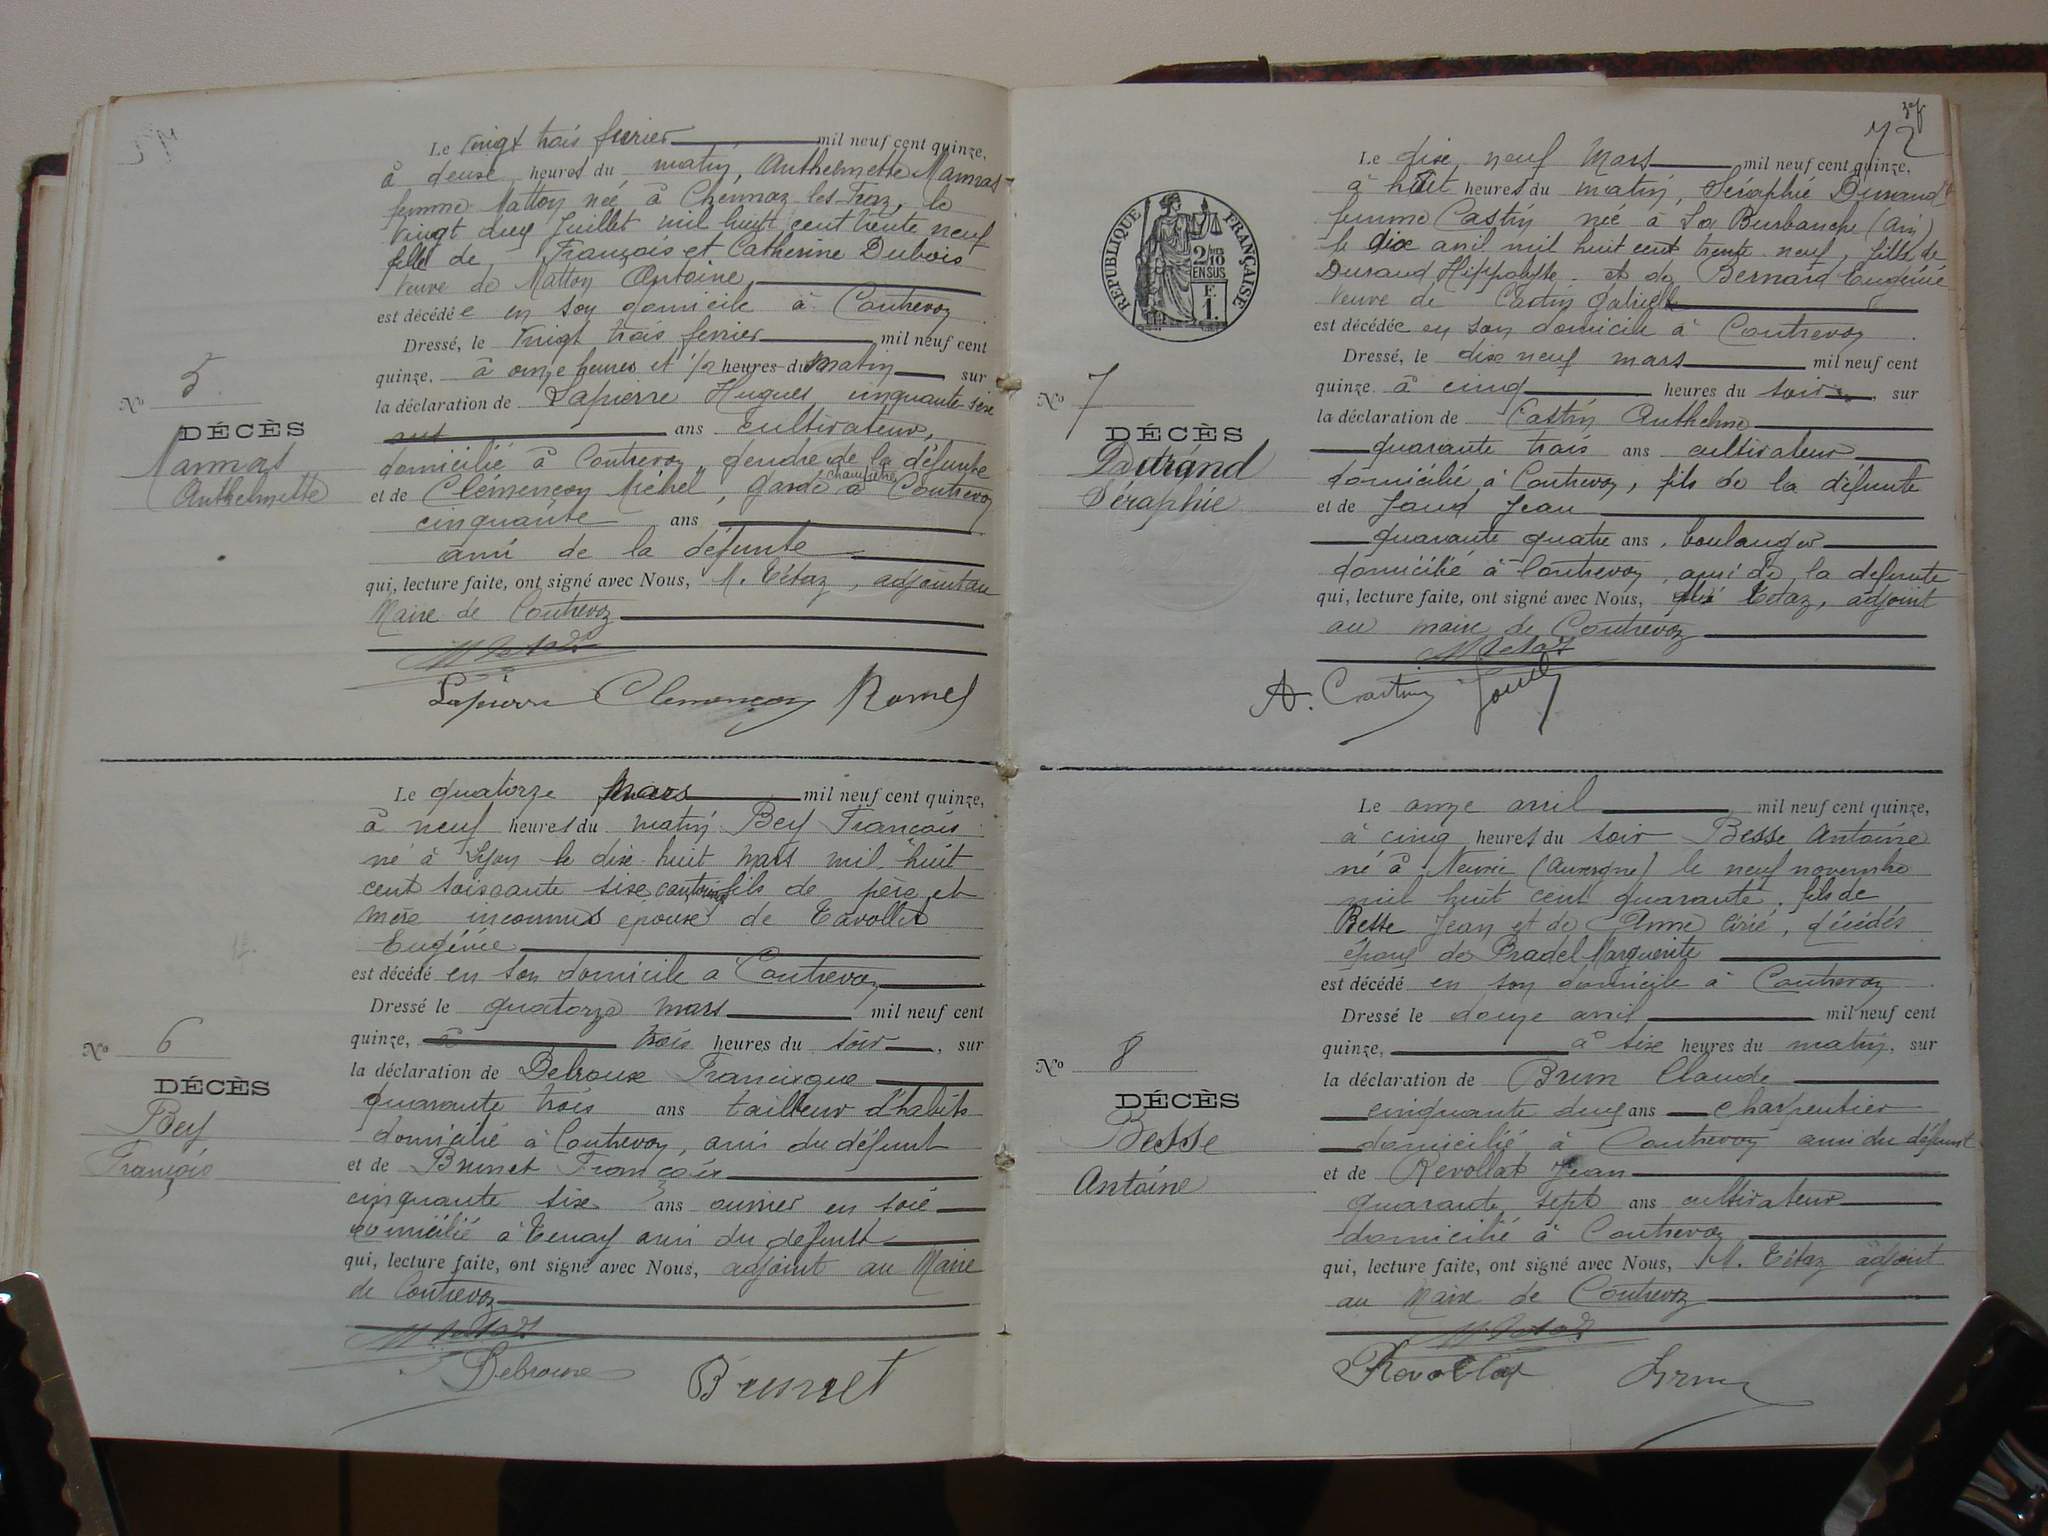 Le vingt trois fevrier mil neuf cent quinze,
à deux heures du matin, Anthelmette Mannas
femme Matton née à Cheignaz les
vingt deux Juillet mil huit cent trente neuf
fille de François et Catherine Dubois
veuve de Matton Antoine
est décédée en son domicile à Contrevoz
Dressé, le vingt trois fevrier mil neuf cent
quinze, à onze heures et 1/2 heures du matin sur
la déclaration de Lapierre Hugues cinquante sixe
ans ans cultivateur,
domicilié à Contrevoz, gendre de la défunte
et de Clémençon Michel, garde champêtre à Contrevoz
cinquante ans
ami de la défunte
qui, lecture faite, ont signé avec Nous, M. Tétaz, adjoint au
Maire de Contrevoz
Lapierre Clemençon
No 5
DÉCÈS
Mannas
Anthelmette
Le quatorze mars mil neuf cent quinze,
à neuf heures du matin Bey François
né à Lyon le dix huit mars mil huit
cent soixante sixe fils de père et
mère inconnus epoux de Tavollet
Eugénie
est décédé en son domicile a Contrevoz
Dressé le quatorze mars mil neuf cent
quinze, à trois heures du soir, sur
la déclaration de Delroux Francisque
quarante trois ans tailleur d'habits
domicilié à Contrevoz, ami du défunt
et de Brunet François
cinquante sixe ans ouvrier en soie
domicilié à Tenay ami du défunt
qui, lecture faite, ont signé avec Nous, adjoint au Maire
de Contrevoz
Brunet
No 6
DÉCÈS
Bey
François
72
RÉPUBLIQUE FRANÇAISE
2/10 EN SUS
F. 1.
Le dixe neuf Mars mil neuf cent quinze,
à huit heures du matin, Séraphie Durand
femme Castin née à La Burbanche (Ain)
le dixe avril mil huit cent trente neuf, fille de
Durand Hippolyte et de Bernard Eugénie
veuve de Castin Gabriel
est décédée en son domicile à Contrevoz
Dressé, le dixe neuf mars mil neuf cent
quinze à cinq heures du soir, sur
la déclaration de Castin Anthelme
quarante trois ans cultivateur
domicilié à Contrevoz, fils de la défunte
et de Jean
quarante quatre ans, boulanger
domicilié à Contrevoz, ami de la défunte
qui, lecture faite, ont signé avec Nous, Tétaz, adjoint
au maire de Contrevoz
A. Castin
No 7
DÉCÈS
Durand
Séraphie
Le onze avril mil neuf cent quinze,
à cinq heures du soir Besse Antoine
né à (Auvergne) le neuf novembre
mil huit cent quarante, fils de
Besse Jean et de Anne, décédés
époux de Pradel Marguerite
est décédé en son domicile à Contrevoz
Dressé le douze avril mil neuf cent
quinze, à sixe heures du matin, sur
la déclaration de Brun Claude
cinquante deux ans charpentier
domicilié à Contrevoz ami du défunt
et de Revollat Jean
quarante sept ans cultivateur
domicilié à Contrevoz
qui, lecture faite, ont signé avec Nous, M. Tétaz adjoint
au Maire de Contrevoz
Revollat Brun
No 8
DÉCÈS
Besse
Antoine